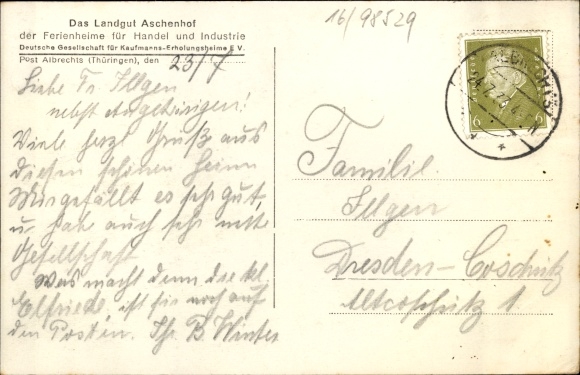 Das Landgut Aschenhof
der Ferienheime für Handel und Industrie
Deutsche Gesellschaft für Kaufmanns-Erholungsheime E.V.
Post Albrechts (Thüringen), den 23/7
16/98529
Liebe Fr. Illgen
nebst Angehörigen!
Viele herzl. Grüße aus
diesem schönen Heim
Mir gefällt es sehr gut,
u. habe auch sehr nette
Gesellschaft
Was macht denn die kl.
Elfriede, ist sie noch auf
den Posten. Ihr B. Winter
Familie
Illgen
Dresden-Coschütz
Altcoschütz 1
6 6